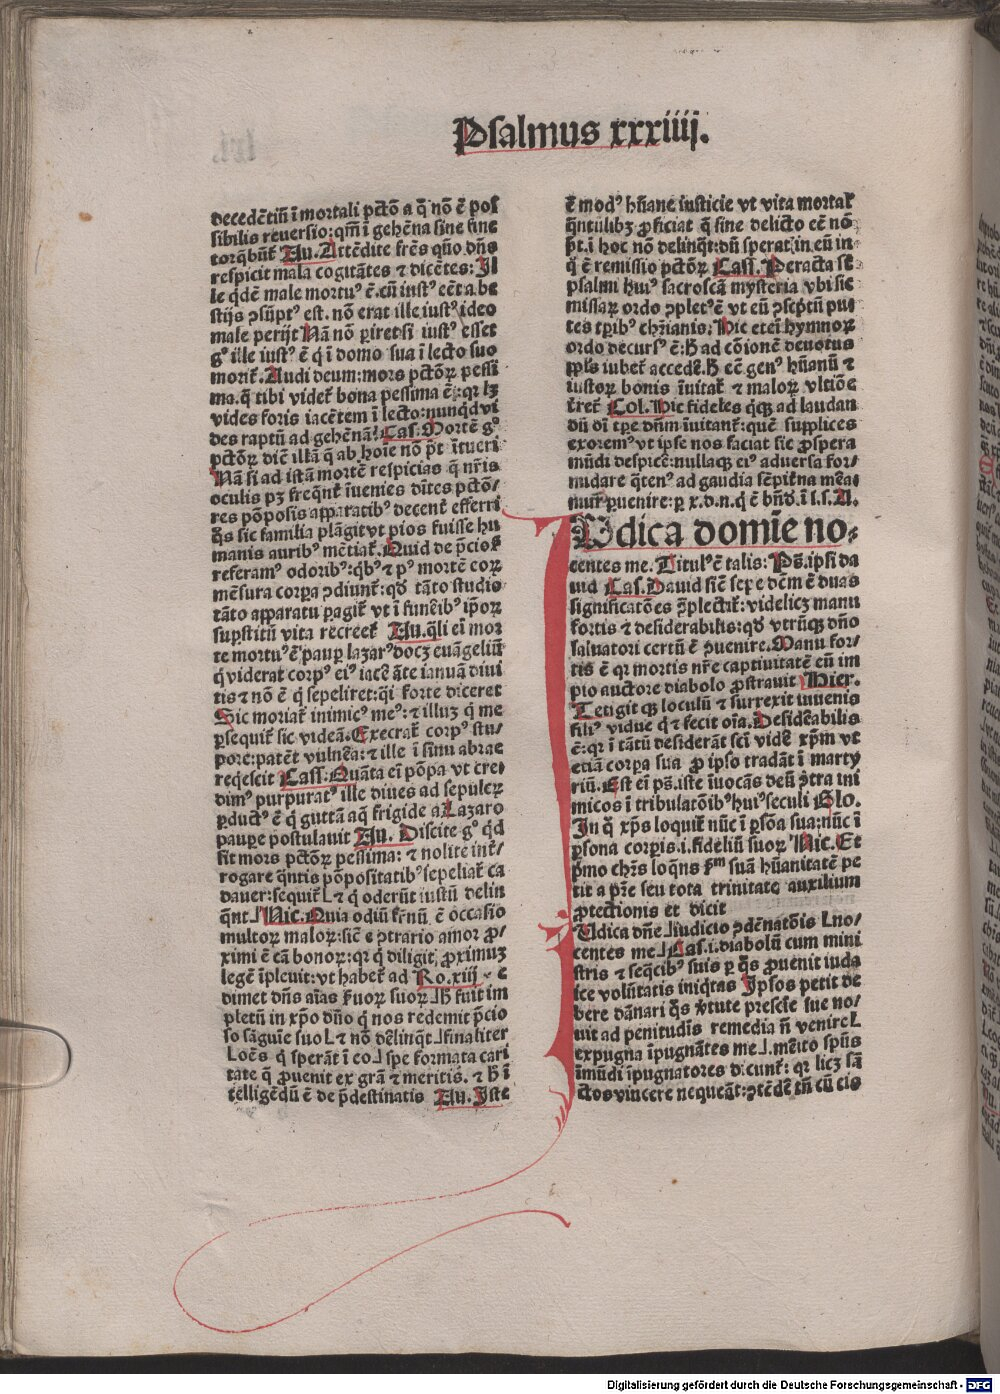 Psalmus xxxiiij.
decedētiū ī mortali pctō a q̄ nō ē pos
sibilis reuersio: qm̄ ī gehēna sine fine
torqbūt᷑ Au. Attēdite frēs quō dn̄s
respicit mala cogitātes ⁊ dicētes: Il
le qdē male mortuꝰ ē. cū iustꝰ eēt a be
stijs ꝯsūptꝰ est. nō erat ille iustꝰ ideo
male perijt Nā nō ꝑiret si iustꝰ esset
gͦ ille iustꝰ ē q̇ ī domo sua ī lecto suo
morit᷑. Audi deum: mors pctōꝝ pessi
ma. q̄ tibi videt᷑ bona pessima ē: qꝛ lꝫ
vides foris iacētem ī lecto: nunqd vi
des raptū ad gehēnā? Cas. Mortē gͦ
pctōꝝ dic̄ illā q̄ ab hoīe nō pt̄ ītueri
Nā si ad istā mortē respicias q̄ nr̄is
oculis pꝫ freqn̄t᷑ īuenies dītes pctō/
res pōposis apparatibꝰ decent᷑ efferri
qͦs sic familia plāgit vt pios fuisse hu
manis auribꝰ mētiat᷑. Quid de p̄cios᷑
referamꝰ odoribꝰ: qbꝰ ⁊ pꝰ mortē coꝝ
mēsura corpa ꝯdiunt᷑: qd̄ tāto studio
tāto apparatu ꝑagit᷑ vt ī funēibꝰ ip̄oꝝ
suꝑstitū vita recreet᷑ Au. q̄li ei mor
te mortuꝰ ē paup lazarꝰ docꝫ euāgeliū
q̇ viderat corpꝰ eiꝰ iacē āte ianuā diui
tis ⁊ nō ē q̇ sepeliret: q̇i forte diceret
Sic moriat᷑ inimicꝰ meꝰ: ⁊ illuꝫ q̇ me
ꝑsequit᷑ sic videā. Execrat᷑ corpꝰ stu/
pore: patēt vulnēa: ⁊ ille ī sinu abrae
reqescit Cass. Quāta ei pōpa vt cre
dimꝰ purpuratꝰ ille diues ad sepulcꝝ
ꝑductꝰ ē q̇ guttā aq̄ frigide a Lazaro
paupe postulauit Au. Discite gͦ qd
sit mors pctōꝝ pessima: ⁊ nolite int᷑/
rogare qn̄tis pōpositatibꝰ sepeliat᷑ ca
dauer: sequit᷑ L ⁊ q̇ oderūt iustū delin
qn̄t ˩ Nic. Quia odiū fr̄nū ē occasio
multoꝝ maloꝝ: sic̄ e ꝯtrario amor ꝓ/
ximi ē cā bonoꝝ: qꝛ q̇ diligit ꝓximuꝫ
legē īpleuit: vt habet᷑ ad Ro. xiij
dimet dn̄s aīas ẜuoꝝ suoꝝ ˩ h̄ fuit im
pletū in xp̄o dn̄o q̇ nos redemit p̄cio
so sāguīe suo L ⁊ nō dēlinqt ˩ finaliter
L oēs q̇ sperāt ī eo ˩ spe formata cari
tate q̄ ꝓuenit ex grā ⁊ meritis. ⁊ h̄ ī
telligēdū ē de p̄destinatis Au. Iste
ē modꝰ hn̄ane iusticie vt vita mortal᷑
qn̄tūlibꝫ ꝓficiat q̄ sine delicto eē nō
pt̄. ī hoc nō delinqt: dū sperat in eū in
q̄ ē remissio pctōꝝ Cass. Peracta st̄
psalmi huiꝰ sacroscā mysteria vbi sic
missaꝝ ordo ꝯpletꝰ ē vt eū ꝯsc̄ptū pu
tes tꝑibꝰ chr̄ianis: Hic etei hymnoꝝ
ordo decursꝰ ē: h̄ ad cōionē deuotus
ppls iubet᷑ accedē. h̄ eē genꝰ hn̄anū ⁊
iustoꝝ bonis īuitat᷑ ⁊ maloꝝ vltiōe
t̄ret᷑ Col. Hic fideles q̄qꝫ ad laudan
dū oī tꝑe dn̄m īuitant᷑: quē supplices
exoremꝰ vt ipse nos faciat sic ꝓspera
mūdi despicē: nullaqꝫ eiꝰ aduersa for/
midare qͣtenꝰ ad gaudia sēpit̄na mēa/
mur ꝑuenire: ꝑ x. d. n. q̇ ē bn̄d̄. ī s. s. A.
Udica domīe no-
centes me. Titulꝰ ē talis: Ps̄. ipsi da
uid Cas. Dauid sic̄ sepe dc̄m ē duas
significatōes ꝯplectit᷑: videlicꝫ manu
fortis ⁊ desiderabilis: qd̄ vtrūqꝫ dn̄o
saluatori certū ē ꝓuenire. Manu for/
tis ē qꝛ mortis nr̄e captiuitatē eū im
pio auctore diabolo ꝓstrauit Hier.
Tetigit qꝫ loculū ⁊ surrexit iuuenis
filiꝰ vidue q̇ ⁊ fecit oīa. Desidēabilis
ē: qꝛ ī tātū desiderāt scī vidē xp̄m vt
etiā corpa sua ꝓ ipso tradāt ī marty
riū. Est ei ps̄. iste īuocās deū ꝯtra ini
micos ī tribulatōibꝰ huiꝰ seculi Glo.
In q̄ xp̄s loquit᷑ nūc ī ꝑsōa sua: nūc ī
ꝑsona corpis. i. fideliū suoꝝ Nic. Et
pͥmo chr̄s loqn̄s ẜm suā hn̄anitatē pe
tit a pr̄e seu tota trinitate auxilium
ꝓtectionis et dicit
Udica dn̄e ˩ iudicio ꝯdēnatōis L no/
centes me ˩ Cas. i. diabolū cum mini
stris ⁊ seqcibꝰ suis ꝑ qͦs ꝓuenit iuda
ice volūtatis iniqtas Ipsos petit de
bere dānari qͦs v̄tute presc̄ie sue no/
uit ad penitudīs remedia n̄ venire L
expugna īpugnātes me ˩. mēito spūs
īmūdi īpugnatores dicunt᷑: qꝛ licꝫ sā
ctos vincere nequeāt: ꝯtēdē tn̄ cū eis
Digitalisierung gefördert durch die Deutsche Forschungsgemeinschaft - DFG